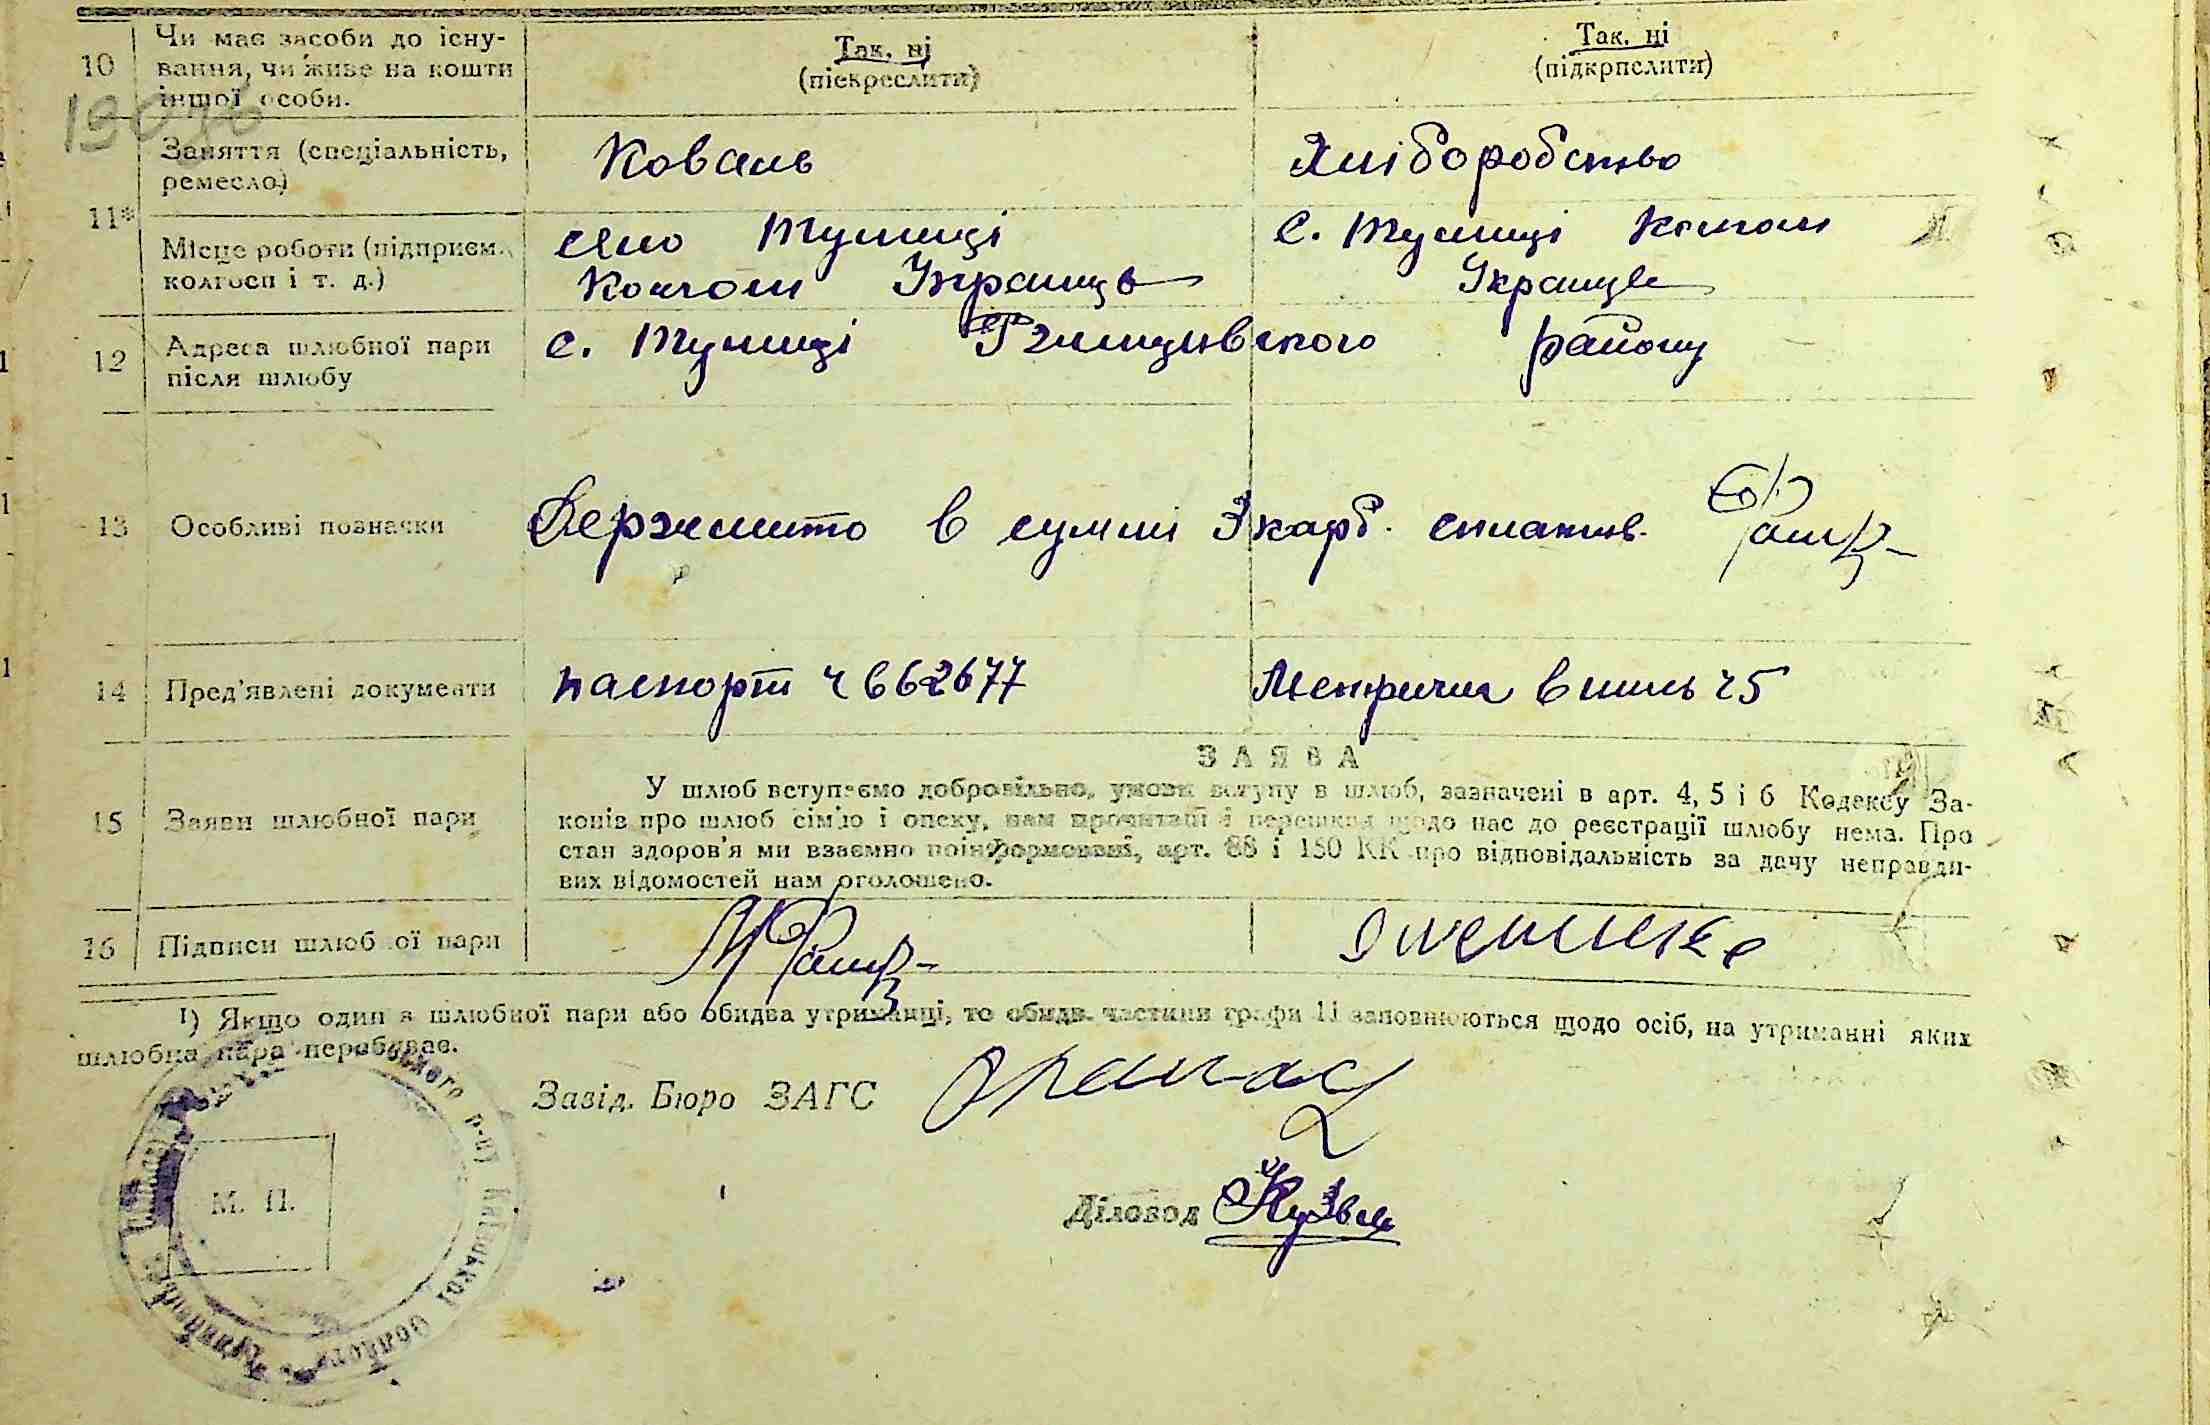 10 Чи має засоби до існу-
вання, чи живе на кошти
іншої особи.
Так, ні
(піскреслити)
Так, ні
(підкрпслити)
11* Заняття (спеціальність,
ремесло)
Коваль
Хліборобство
Місце роботи (підприєм.,
колгосп і т. д.)
село Тулинці
Колгосп Українець
с. Тулинці колгосп
Українець
12 Адреса шлюбної пари
після шлюбу
с. Тулинці району
13 Особливі позначки
Держмито в суммі 3 карб. сплатив.
14 Пред'явлені документи
паспорт ч 662677
Метрична випись ч5
15 Заяви шлюбної пари
ЗАЯВА
У шлюб вступаємо добровільно, умови вступу в шлюб, зазначені в арт. 4, 5 і 6 Кодексу За-
конів про шлюб сім'ю і опеку, нам прочитані і перешкод щодо нас до реєстрації шлюбу нема. Про
стан здоров'я ми взаємно поінформовані, арт. 88 і 150 КК про відповідальність за дачу неправди-
вих відомостей нам оголошено.
16 Підписи шлюбної пари
1) Якщо один з шлюбної пари або обидва утриманці, то обидві частини графи 11 заповнюються щодо осіб, на утриманні яких
шлюбна пара перебуває.
Завід. Бюро ЗАГС
М. П.
Діловод
р-ну Київської Області